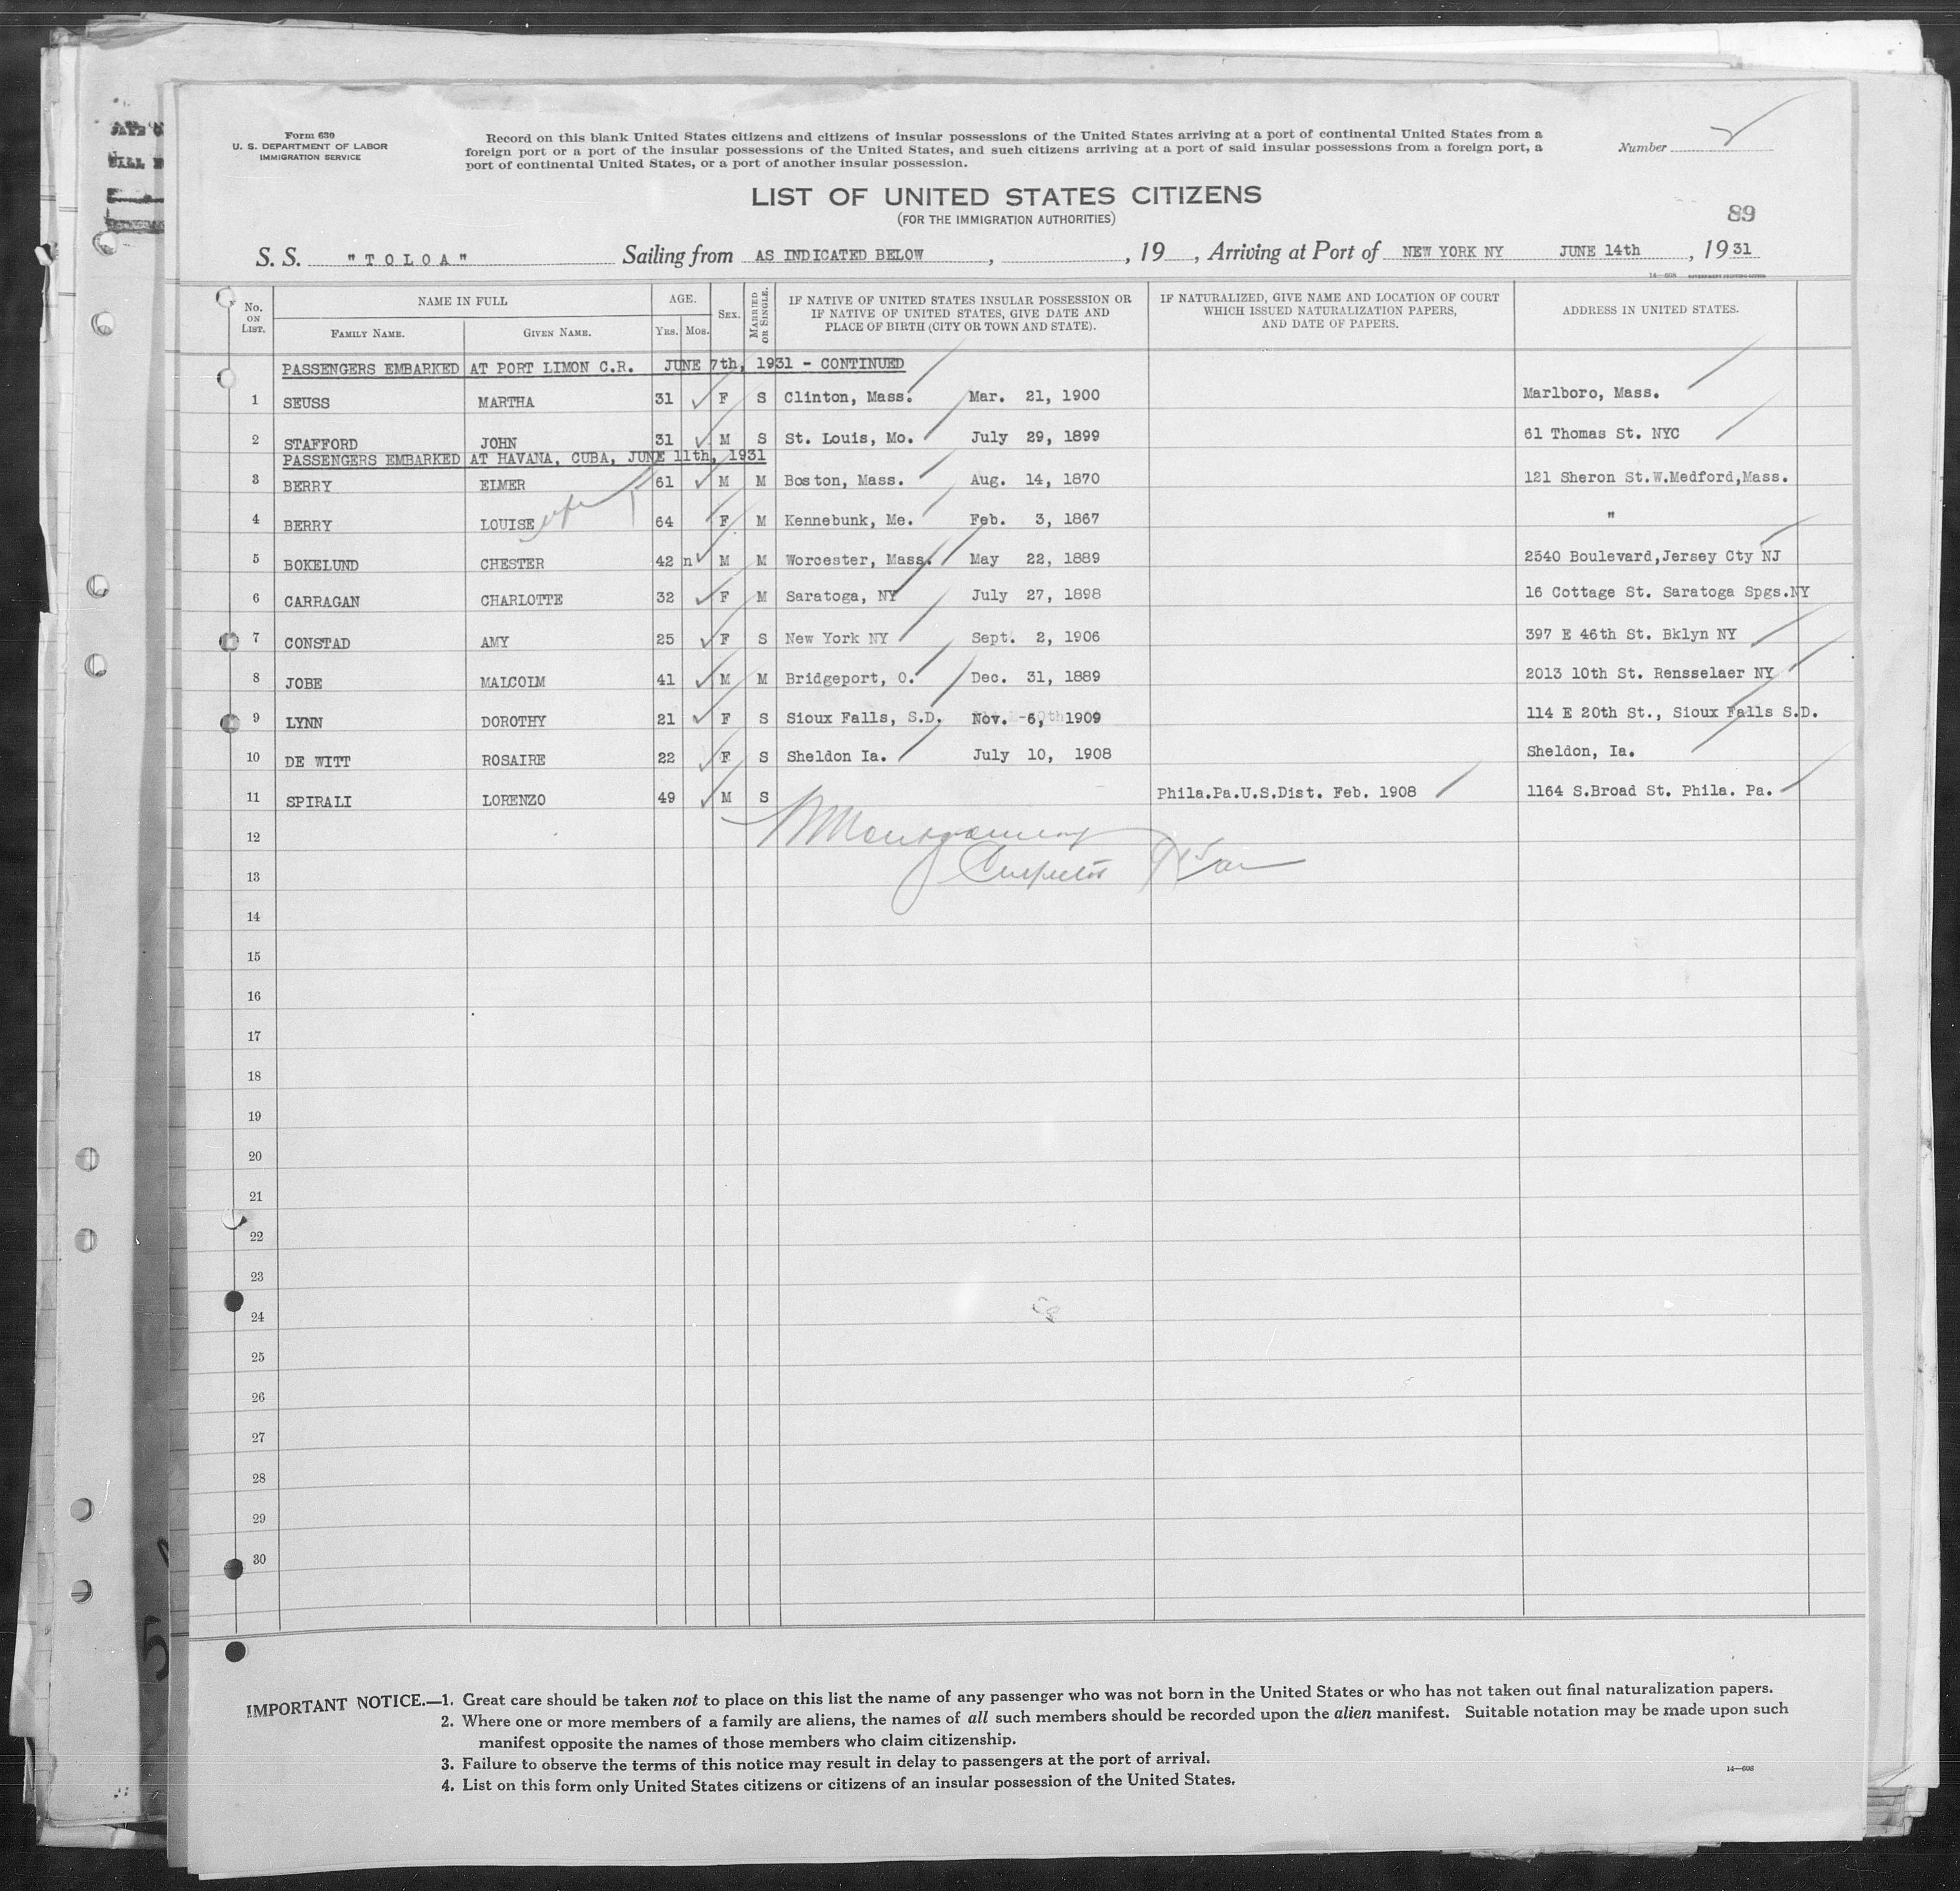 Form 630
U. S. DEPARTMENT OF LABOR
IMMIGRATION SERVICE
Record on this blank United States citizens and citizens of insular possessions of the United States arriving at a port of continental United States from a
foreign port or a port of the insular possessions of the United States, and such citizens arriving at a port of said insular possessions from a foreign port, a
port of continental United States, or a port of another insular possession.
Number 2
LIST OF UNITED STATES CITIZENS
(FOR THE IMMIGRATION AUTHORITIES)
89
S. S. "TOLOA" Sailing from AS INDICATED BELOW , , 19 , Arriving at Port of NEW YORK NY JUNE 14th , 1931
14—608 GOVERNMENT PRINTING OFFICE
No. ON LIST. NAME IN FULL FAMILY NAME. GIVEN NAME. AGE. YRS. MOS. SEX. MARRIED OR SINGLE. IF NATIVE OF UNITED STATES INSULAR POSSESSION OR IF NATIVE OF UNITED STATES, GIVE DATE AND PLACE OF BIRTH (CITY OR TOWN AND STATE). IF NATURALIZED, GIVE NAME AND LOCATION OF COURT WHICH ISSUED NATURALIZATION PAPERS, AND DATE OF PAPERS. ADDRESS IN UNITED STATES.
PASSENGERS EMBARKED AT PORT LIMON C.R. JUNE 7th, 1931 - CONTINUED
1 SEUSS MARTHA 31 F S Clinton, Mass. Mar. 21, 1900 Marlboro, Mass.
2 STAFFORD JOHN 31 M S St. Louis, Mo. July 29, 1899 61 Thomas St. NYC
PASSENGERS EMBARKED AT HAVANA, CUBA, JUNE 11th, 1931
3 BERRY ELMER 61 M M Boston, Mass. Aug. 14, 1870 121 Sheron St.W.Medford,Mass.
4 BERRY LOUISE wife 64 F M Kennebunk, Me. Feb. 3, 1867 "
5 BOKELUND CHESTER 42 n M M Worcester, Mass. May 22, 1889 2540 Boulevard,Jersey Cty NJ
6 CARRAGAN CHARLOTTE 32 F M Saratoga, NY July 27, 1898 16 Cottage St. Saratoga Spgs.NY
7 CONSTAD AMY 25 F S New York NY Sept. 2, 1906 397 E 46th St. Bklyn NY
8 JOBE MALCOLM 41 M M Bridgeport, O. Dec. 31, 1889 2013 10th St. Rensselaer NY
9 LYNN DOROTHY 21 F S Sioux Falls, S.D. Nov. 6, 1909 114 E 20th St., Sioux Falls S.D.
10 DE WITT ROSAIRE 22 F S Sheldon Ia. July 10, 1908 Sheldon, Ia.
11 SPIRALI LORENZO 49 M S Phila.Pa.U.S.Dist. Feb. 1908 1164 S.Broad St. Phila. Pa.
12 Montgomery
13 Inspector
14
15
16
17
18
19
20
21
22
23
24
25
26
27
28
29
30
IMPORTANT NOTICE.—1. Great care should be taken not to place on this list the name of any passenger who was not born in the United States or who has not taken out final naturalization papers.
2. Where one or more members of a family are aliens, the names of all such members should be recorded upon the alien manifest. Suitable notation may be made upon such
manifest opposite the names of those members who claim citizenship.
3. Failure to observe the terms of this notice may result in delay to passengers at the port of arrival.
4. List on this form only United States citizens or citizens of an insular possession of the United States.
14—608